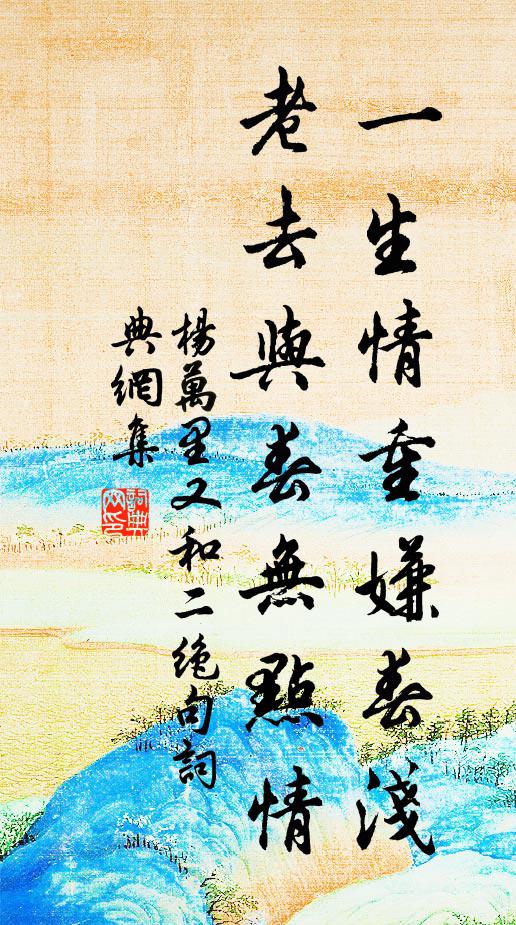 一生情重嫌春淺
老去與春無點情
楊萬里又和二絶句詞
典網集
詞典網印